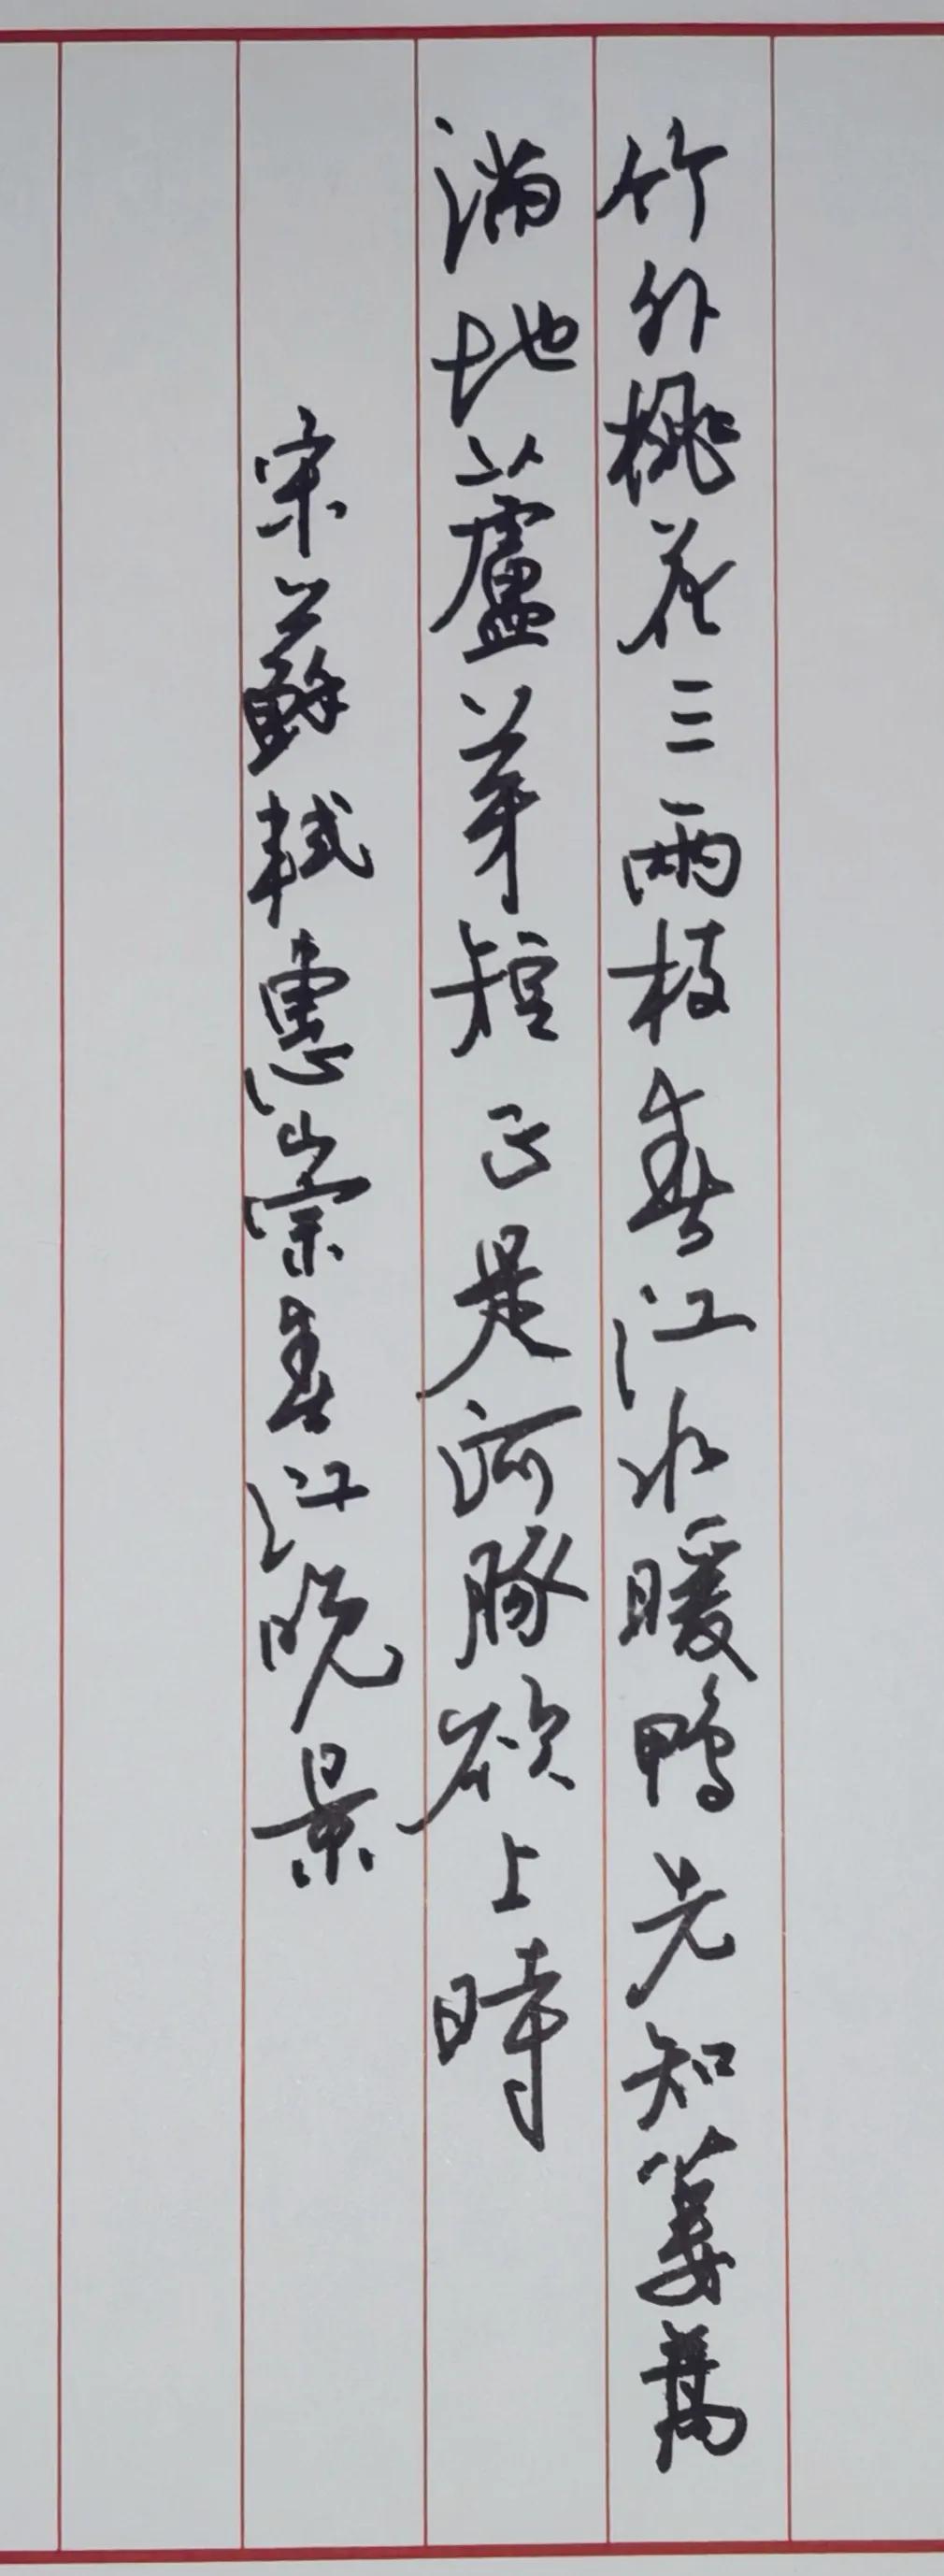 竹外桃花三兩枝春江水暖鴨先知蔞蒿
滿地蘆芽短正是河豚欲上時
宋蘇軾惠崇春江晚景